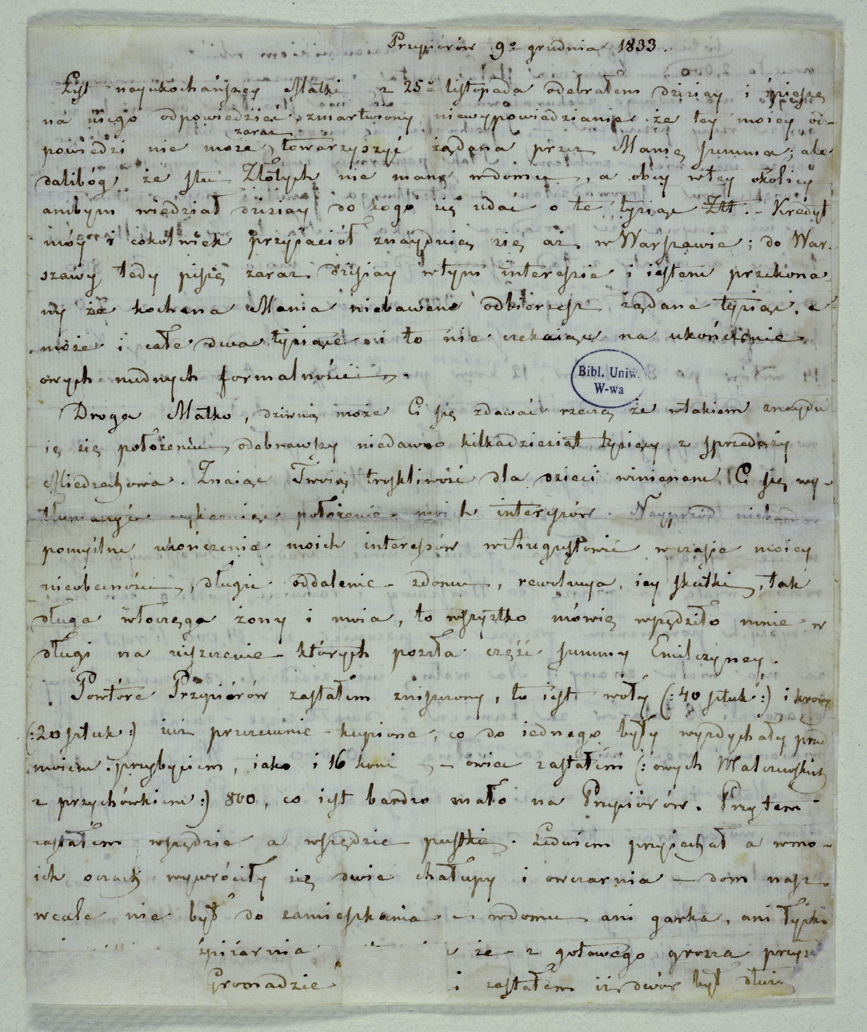 Przepiorów 9º grudnia 1833.
List nayukochańszey Matki z 25º listopada odebrałem dzisiay i spieszę
na niego odpowiedzieć, zmartwiony niewypowiedzianie że tey moiey od-
zaraz
powiedzi nie może towarzyszyć żądana przez Manię summa; ale
dalibóg że stu Złotych nie mamy wdomu, a obcy wtey okolicy
anibym wiedział dzisiay do kogo się udać o te tysiąc Złł. Kredyt
móy i cokolwiek przyjaciół znayduie się aż w Warszawie; do War-
szawy tedy piszę zaraz dzisiay wtym interessie i iestem przekona-
ny że kochana Mania niebawem odbierzesz żądane tysiąc, a
może i całe dwa tysiące i to nie czekaiąc na ukończenie
owych nudnych formalności.
Bibl. Uniw.
W-wa
Droga Matko, dziwną może Ci się zdawać rzeczą że wtakiem znaydu
ię się położeniu odebrawszy niedawno kilkadziesiąt tysięcy z sprzedaży
Miedzechowa. Znaiąc Twoią troskliwość dla dzieci winienem Ci się wy-
tłumaczyć położenie moich interesów. Nayprzód
pomyślne ukończenie moich interesów w Augustowie wczasie moiey
nieobecności, długie oddalenie zdomu, rewolucya, iey skutki, tak
długa włóczęga żony i moia, to wszystko mówię wpędziło mnie w
długi na uiszczenie których poszła część summy Emilczyney.
Powtóre Przepiorów zastałem zniszczony, to iest woły (:40 sztuk:) i krowy
(:20 sztuk:) przezemnie kupione, co do iednego były wyzdychały przed
moiem przybyciem, iako i 16 koni, – owiec zastałem (:owych Malczewskich
z przychówkiem:) 800, co iest bardzo mało na Przepiorów. Przytem
zastałem wszędzie a wszędzie pustki. Ledwiem przyiechał a wmo-
ich oczach wywróciły się dwie chałupy i owczarnia – dom nasz
wcale nie był do zamieszkania – wdomu ani garka, ani łyżki
spiżarnia że z gotowego grosza
Gromadzie i zastałem iż dwór był